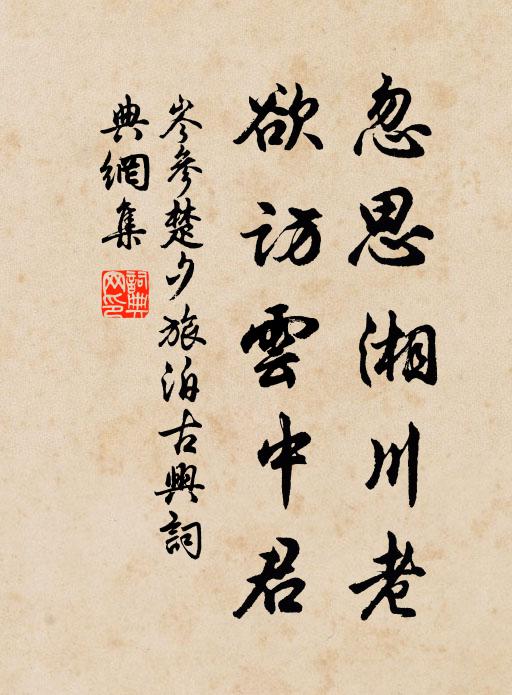 忽思湘川老
欲訪雲中君
岑參楚夕旅泊古興詞
典網集
詞典網印